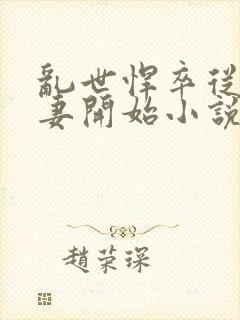 亂世悍卒從
妻開始小說
趙荣琛